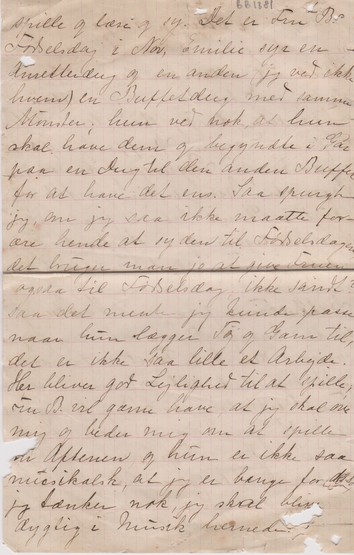 BB1881
spille og læse og sy. Det er Fru B's
Fødselsdag i Nov, Emilie syr en
og en anden, jeg ved ikke
hvem) en Buffetdug med samme
Mønster, hun ved nok at hun
skal have dem og begyndte i
paa en Dug til den anden Buffet
for at have det ens. Saa spurgte
jeg om jeg saa ikke maatte for-
ære hende at sy den til Fødselsdagen
det bruger man jo at give Fruen
ogsaa til Fødselsdag ikke sandt?
saa det mente jeg kunde passe
naar hun lægger Tøj og Garn til,
det er ikke saa lille et Arbejde.
Her bliver god Lejlighed til at spille,
Fru B. vil gærne have at jeg skal øve
mig og beder mig om at spille
om Aftenen og hun er ikke saa
musikalsk, at jeg er bange for
jeg tænker nok jeg skal blive
dygtig i Musik hernede